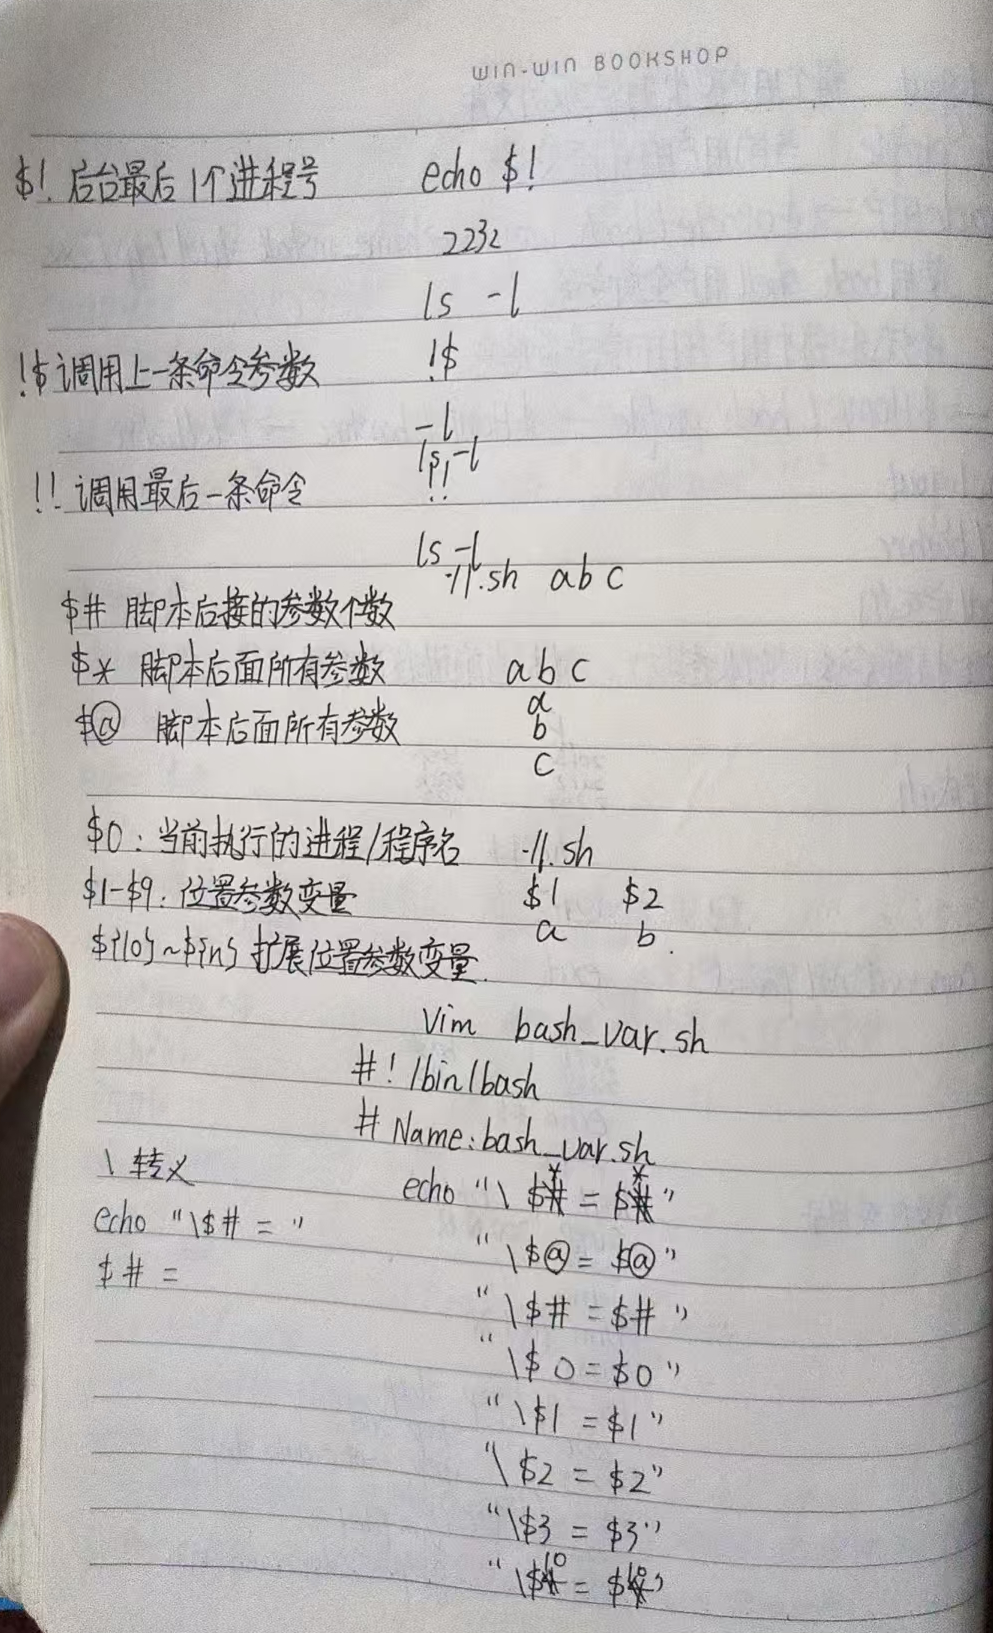 WIN-WIN BOOKSHOP
$! 后台最后1个进程号 echo $!
2232
ls -l
!$调用上一条命令参数 !$
-l
ls -l
!! 调用最后一条命令 !!
ls -l
./1.sh a b c
$# 脚本后接的参数个数
$* 脚本后面所有参数 a b c
a
$@ 脚本后面所有参数 b
c
$0:当前执行的进程/程序名 ./1.sh
$1-$9:位置参数变量 $1 $2
a b
${10}~${n} 扩展位置参数变量.
vim bash_var.sh
#!/bin/bash
# Name:bash_var.sh
\ 转义 echo "\$* = $*"
echo "\$# = " "\$@ = $@"
$# = "\$# = $#"
"\$0 = $0"
"\$1 = $1"
"\$2 = $2"
"\$3 = $3"
"\$10 = $10"